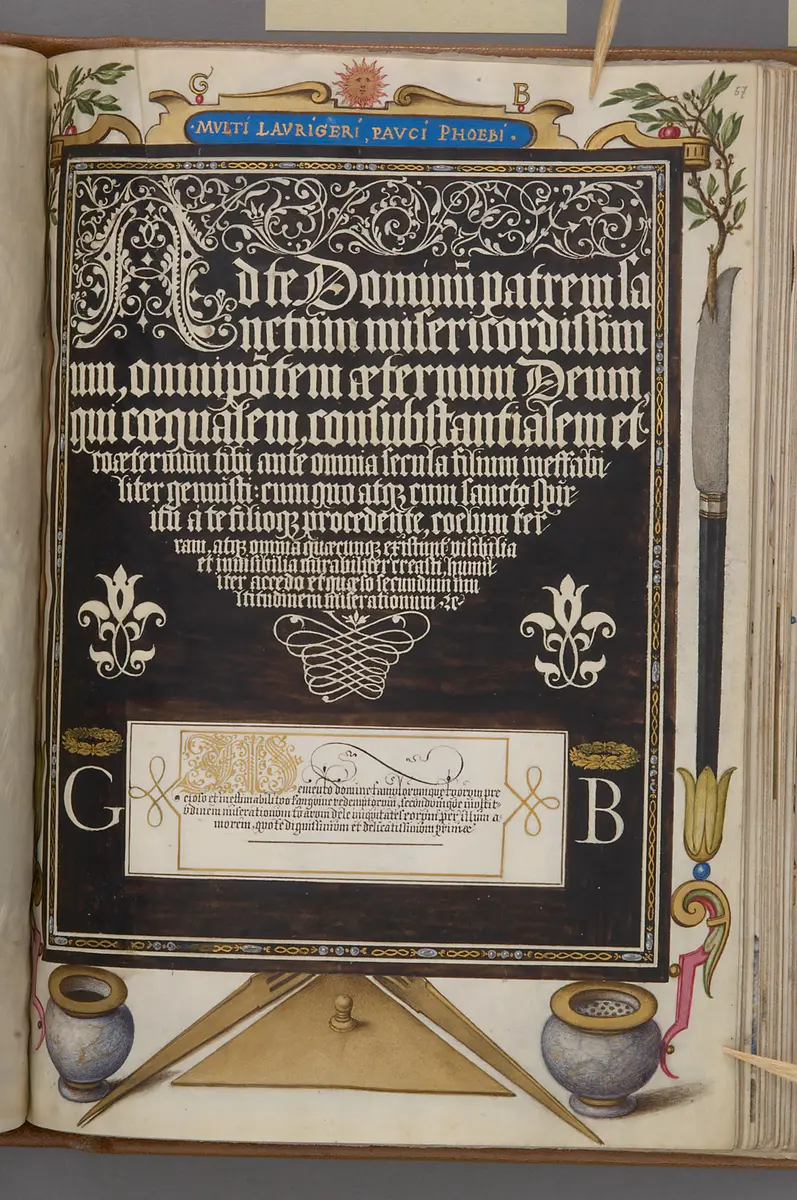 G B
57
MVLTI LAVRIGERI, PAVCI PHOEBI.
Ad te Dominũ patrem sa
nctum misericordissim
um, omnipõtem æternum Deum,
qui cœqualem, consubstantialem et
coæternum tibi ante omnia secula filium ineffabi-
liter genuisti: cum quo atqꝫ cum sancto spir-
itu a te filioqꝫ procedente, coelum ter
ram, atqꝫ omnia quæcunqꝫ existunt visibilia
et invisibilia mirabiliter creasti, humi-
liter accedo et quæso secundum mu
ltitudinem miserationum ꝛc
G B
emento domine famulorumque tuorum pre
cioso et inestimabili tuo sanguine redemptorum, secundumque multit-
udinem miserationum tuarum dele iniquitates eorum per illum a-
morem, quo te dignissimum et delicatissimum